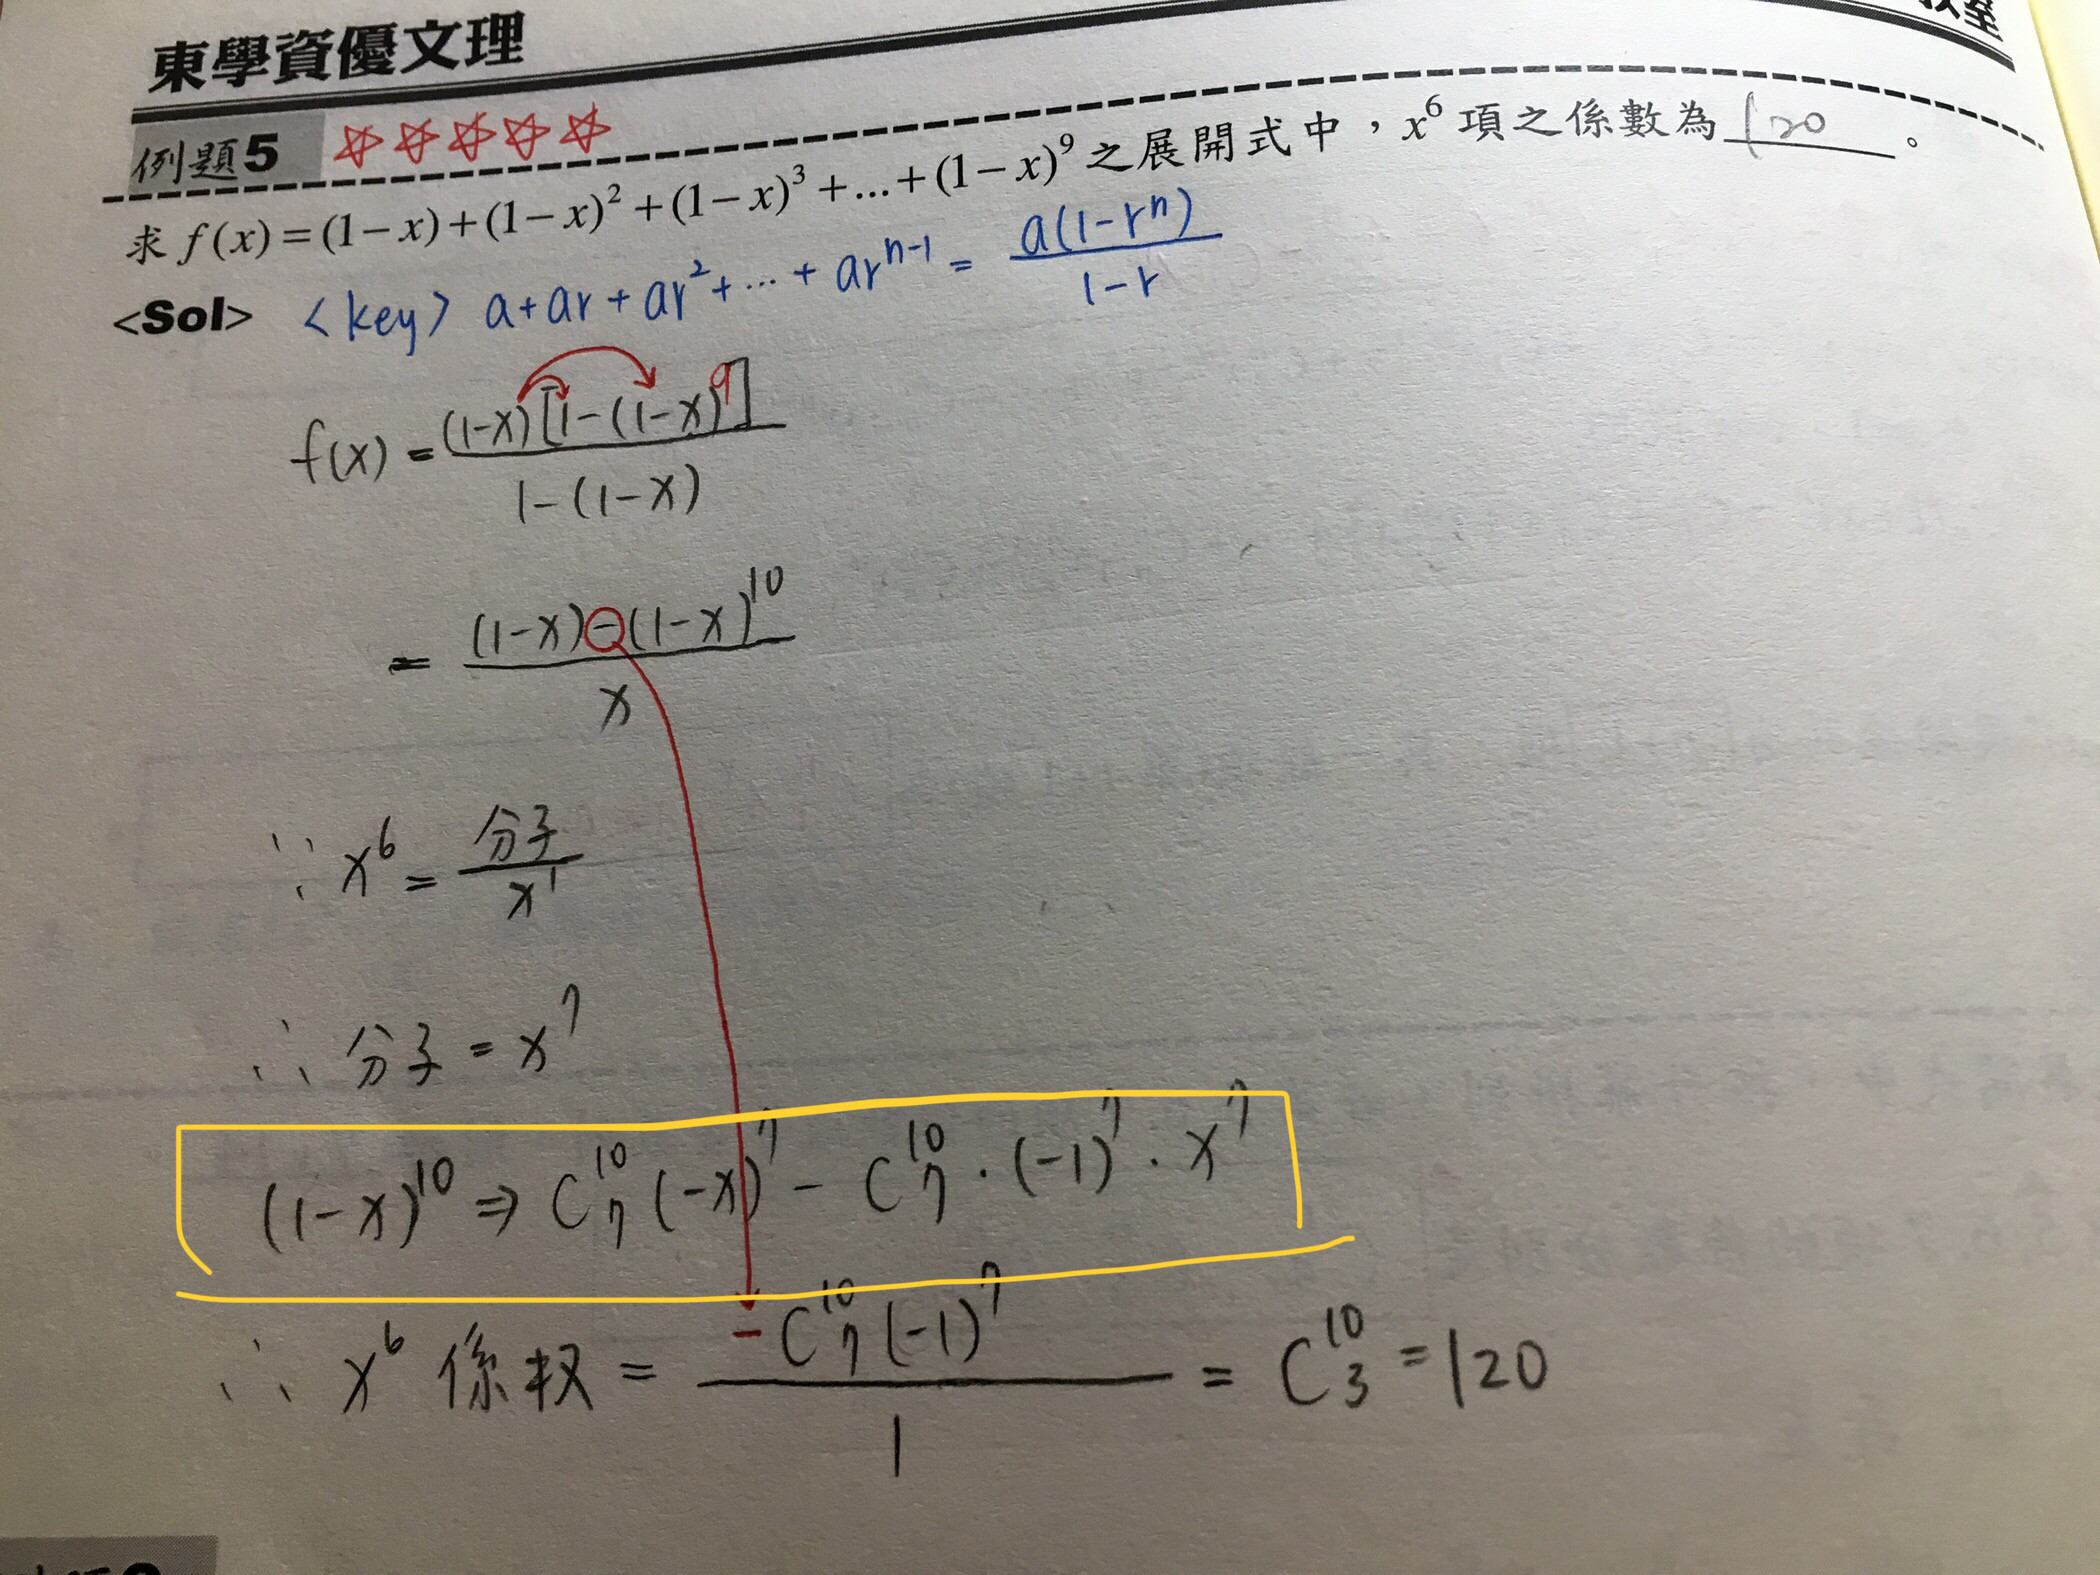 東學資優文理
例題5 ☆☆☆☆☆
求 f(x)=(1−x)+(1−x)²+(1−x)³+...+(1−x)⁹之展開式中，x⁶項之係數為 120 。
<Sol> <key> a+ar+ar²+...+ar^(n-1) = a(1-r^n) / 1-r
f(x) = (1-x)[1-(1-x)⁹] / 1-(1-x)
= (1-x)-(1-x)¹⁰ / x
∵ x⁶ = 分子 / x¹
∴ 分子 = x⁷
(1-x)¹⁰ ⇒ C¹⁰₇ (-x)⁷ - C¹⁰₇ · (-1)⁷ · x⁷
∴ x⁶ 係权 = -C¹⁰₇ (-1)⁷ / 1 = C¹⁰₃ = 120